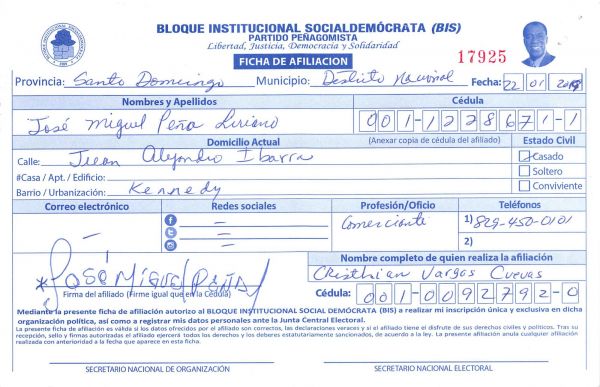 BLOQUE INSTITUCIONAL SOCIALDEMÓCRATA (BIS)
PARTIDO PEÑAGOMISTA
Libertad, Justicia, Democracia y Solidaridad
FICHA DE AFILIACION
17925
Provincia: Santo Domingo Municipio: Distrito Nacional Fecha: 22 01 2019
Nombres y Apellidos Cédula
José Miguel Peña Liriano 001-1228671-1
Domicilio Actual (Anexar copia de cédula del afiliado) Estado Civil
Calle: Juan Alejandro Ibarra Casado
#Casa / Apt. / Edificio: Soltero
Barrio / Urbanización: Kennedy Conviviente
Correo electrónico Redes sociales Profesión/Oficio Teléfonos
— f — Comerciante 1) 829-450-0101
—
— 2)
Nombre completo de quien realiza la afiliación
*JOSÉ MIGUEL PEÑA Cristhian Vargas Cuevas
Firma del afiliado (Firme igual que en la Cédula) Cédula: 001-0092792-0
Mediante la presente ficha de afiliación autorizo al BLOQUE INSTITUCIONAL SOCIAL DEMÓCRATA (BIS) a realizar mi inscripción única y exclusiva en dicha
organización política, así como a registrar mis datos personales ante la Junta Central Electoral.
La presente ficha de afiliación es válida si los datos ofrecidos por el afiliado son correctos, las declaraciones veraces y si el afiliado tiene el disfrute de sus derechos civiles y políticos. Tras su
recepción, sello y firmas autorizadas el afiliado ejercerá todos los derechos y los deberes estatutariamente sancionados, de acuerdo a la ley. La presente afiliación anula cualquier afiliación
realizada con anterioridad a la fecha que aparece en esta ficha.
SECRETARIO NACIONAL DE ORGANIZACIÓN SECRETARIO NACIONAL ELECTORAL